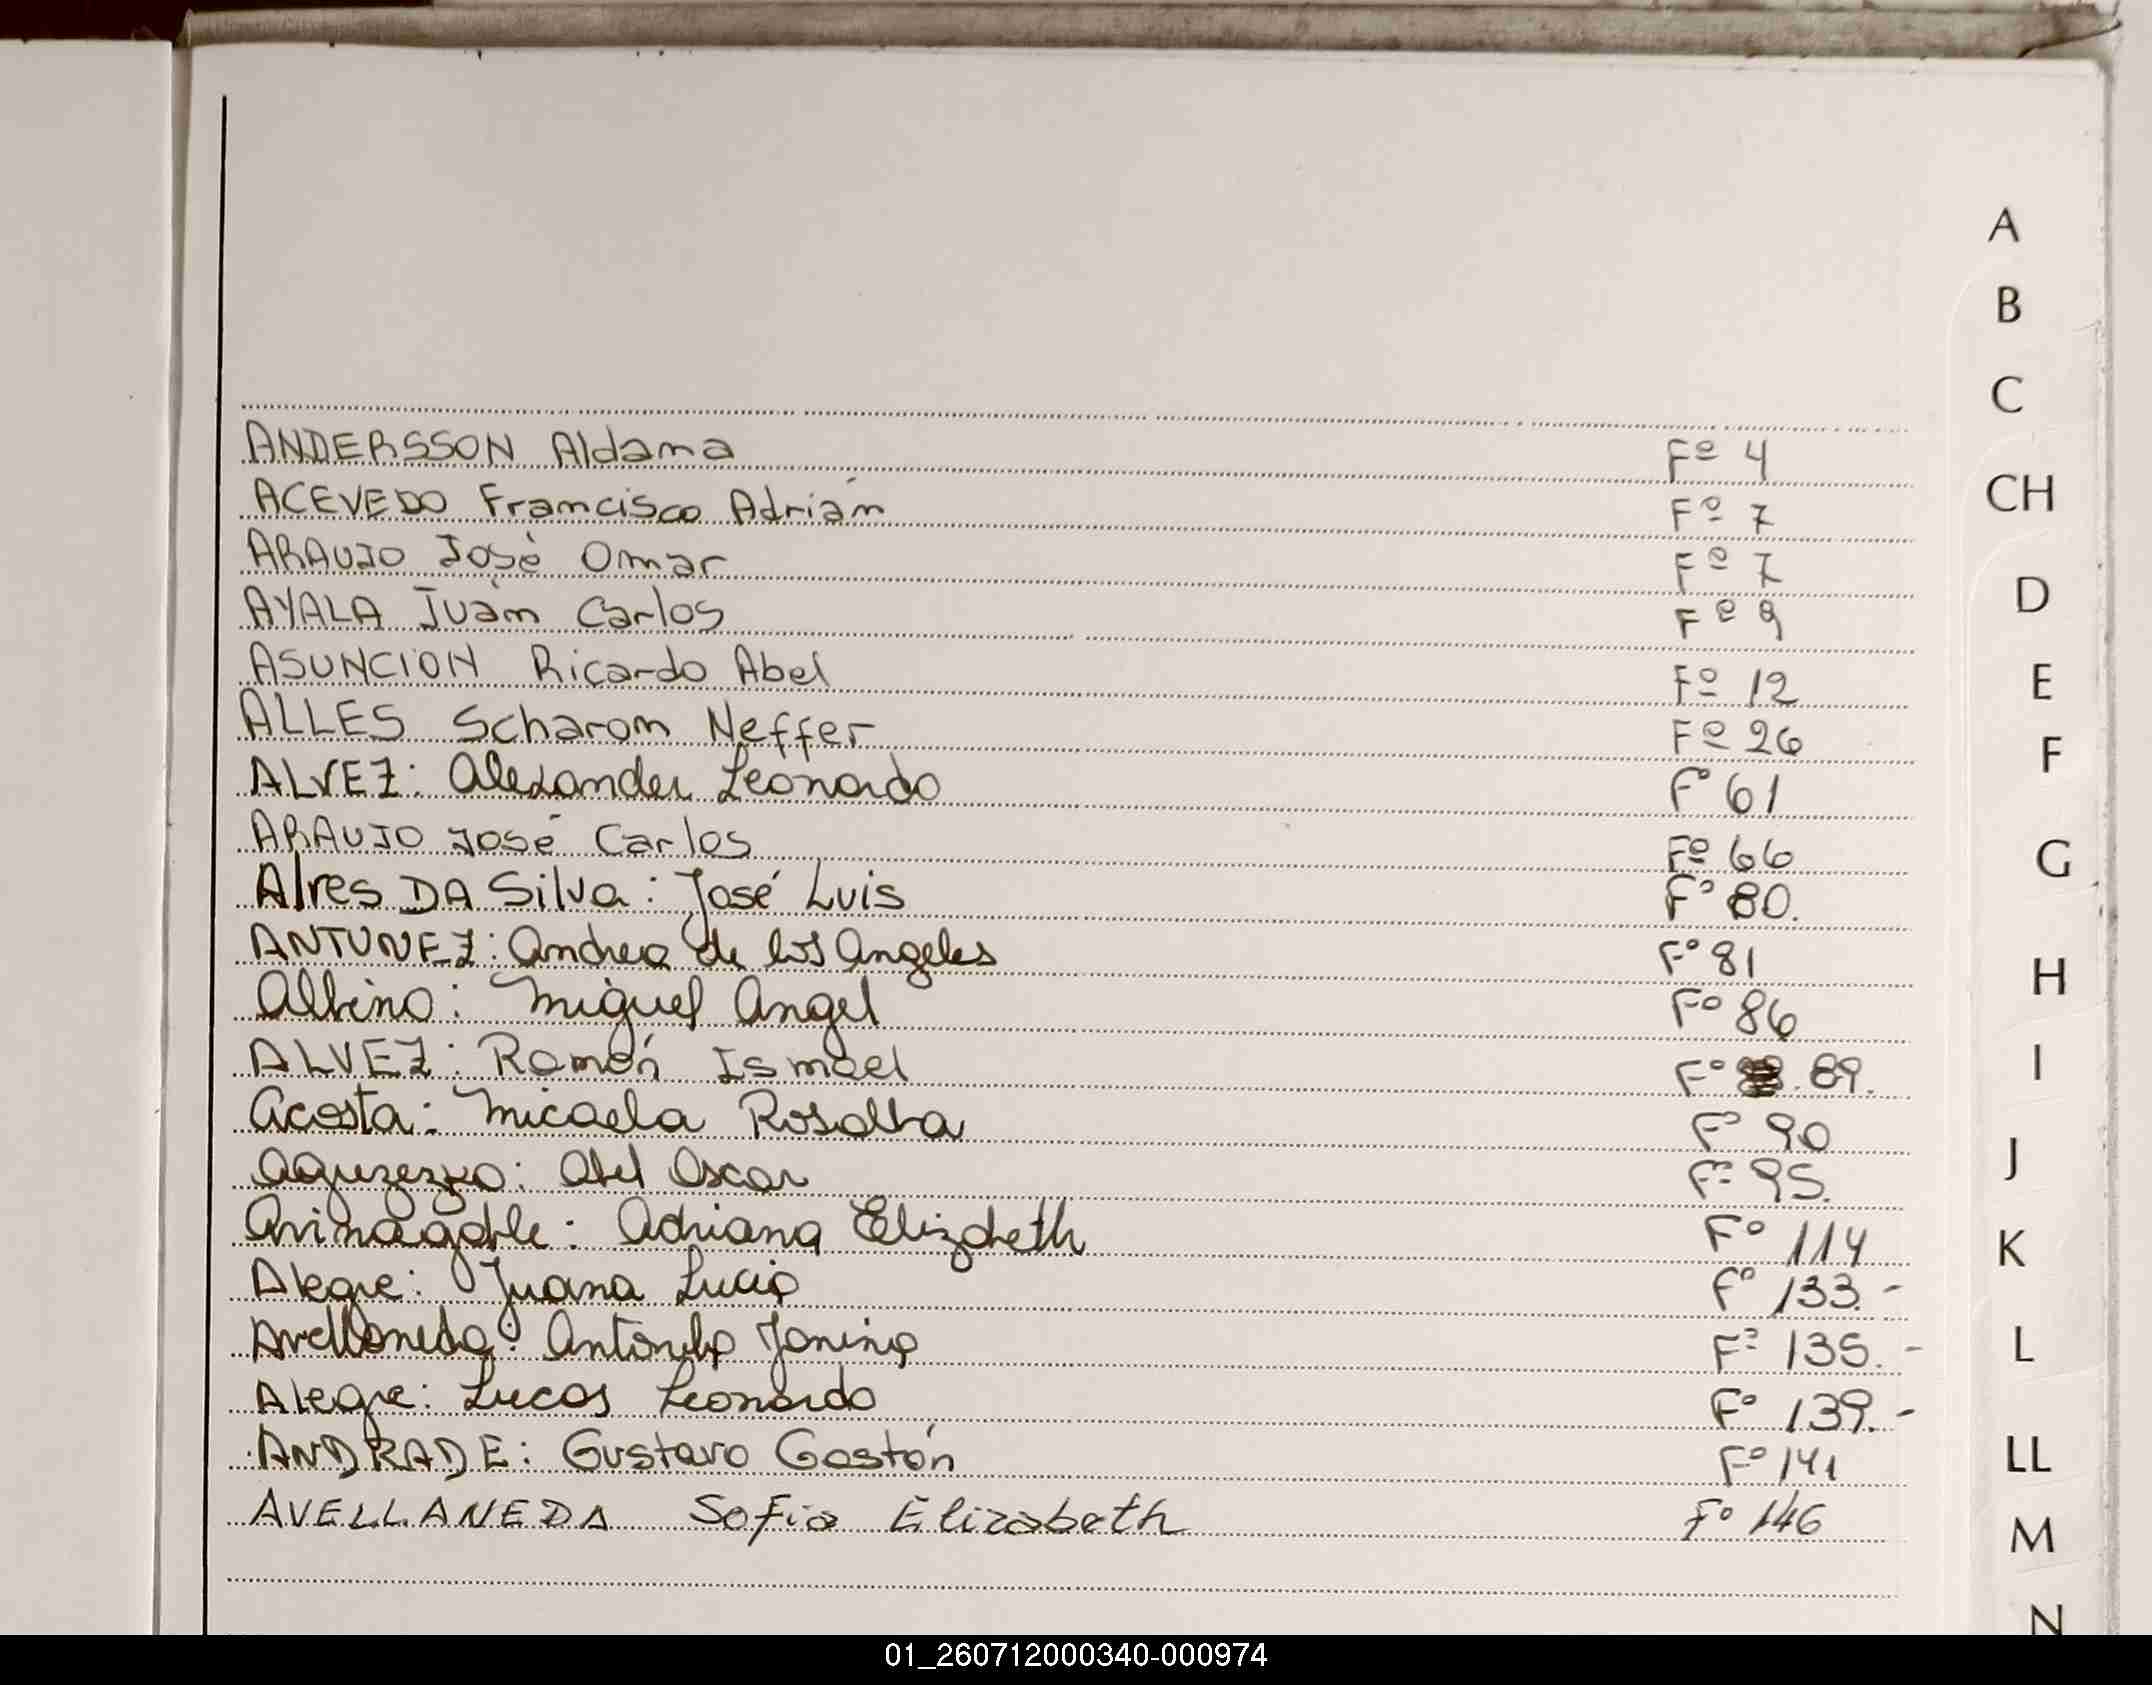 A
B
C
ANDERSSON Aldama Fº 4
CH
ACEVEDO Francisco Adrián Fº 7
ARAUJO José Omar Fº 7
D
AYALA Juan Carlos Fº 9
ASUNCION Ricardo Abel Fº 12
E
ALLES Scharom Neffer Fº 26
F
ALVEZ: Alexander Leonardo F° 61
ARAUJO José Carlos Fº 66
G
Alves DA Silva: José Luis F° 80.
ANTUNEZ: Andrea de los Angeles F° 81
H
Albino: Miguel Angel F° 86
ALVEZ: Ramón Ismael F° 89.
I
Acosta: Micaela Rosalba F° 90
J
Abel Oscar F° 95.
Adriana Elizabeth F° 114
K
Alegre: Juana Lucia F° 133.-
Avellaneda: Antonela Janina F° 135.-
L
Alegre: Lucas Leonardo F° 139.-
ANDRADE: Gustavo Gastón F° 141
LL
AVELLANEDA Sofia Elizabeth F° 146
M
N
01_260712000340-000974